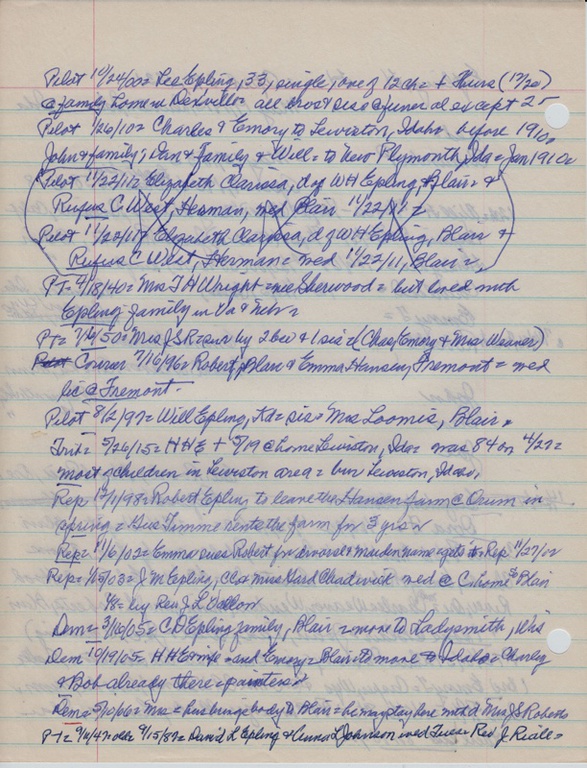 Pilot 10/24/00= Lee Epling, 33, single, one of 12 ch= + Thurs (10/20)
@ family home in Dexville= all bros & sis @ funeral except 2
Pilot 1/26/10= Charles & Emory to Lewiston, Idaho before 1910=
John & family; Dan & Family & Will= to New Plymouth, Ida= Jan 1910=
Pilot 11/22/11= Elizabeth Clarissa, d of WH Epling, Blair= &
Rufus C. West, Herman, med Blair 11/22/11=
Pilot 11/22/11= Elizabeth Clarissa, d of WH Epling, Blair &
Rufus C West, Herman= med 11/22/11, Blair=
PT= 4/18/40= Mrs T A Wright= nee Sherwood= but lived with
Epling family in Va & Neb=
PT= 7/16/50= Mrs J S R= sur by 2 bro & 1 sis (Chas, Emory & Mrs Weaver)
Courier 7/16/96= Robert, Blair & Emma Hansen, Fremont= med
lic @ Fremont.
Pilot 8/2/97= Will Epling, sis= Mrs Loomis, Blair.
Trib= 5/26/15= H H E + 5/19 @ home Lewiston, Ida= was 84 on 4/27=
most of children in Lewiston area= bur Lewiston, Idaho,
Rep 12/1/98= Robert Epling to leave the Hansen farm @ Orum in
spring= Gus Timme rents the farm for 3 yrs=
Rep= 11/6/02= Emma sues Robert for divorce & maiden name= gets it= Rep 11/27/02
Rep= 1/15/03= J M Epling, CC & Miss Chadwick med @ C home Blair
1/8= by Rev J L Vallow
Dem= 3/16/05= C D Epling family, Blair= move to Ladysmith, Wis
Dem 10/19/05= H H E & wife= and Emory= Blair= to move to Idaho= Charley
& Bob already there= painters
Dem= 5/10/06= Mrs= hus brings body to Blair= he may stay here with d Mrs J S Roberts
PT= 9/16/47= 9/15/87= David L Epling & Anna L Johnson wed Tues= Rev J. Riall=